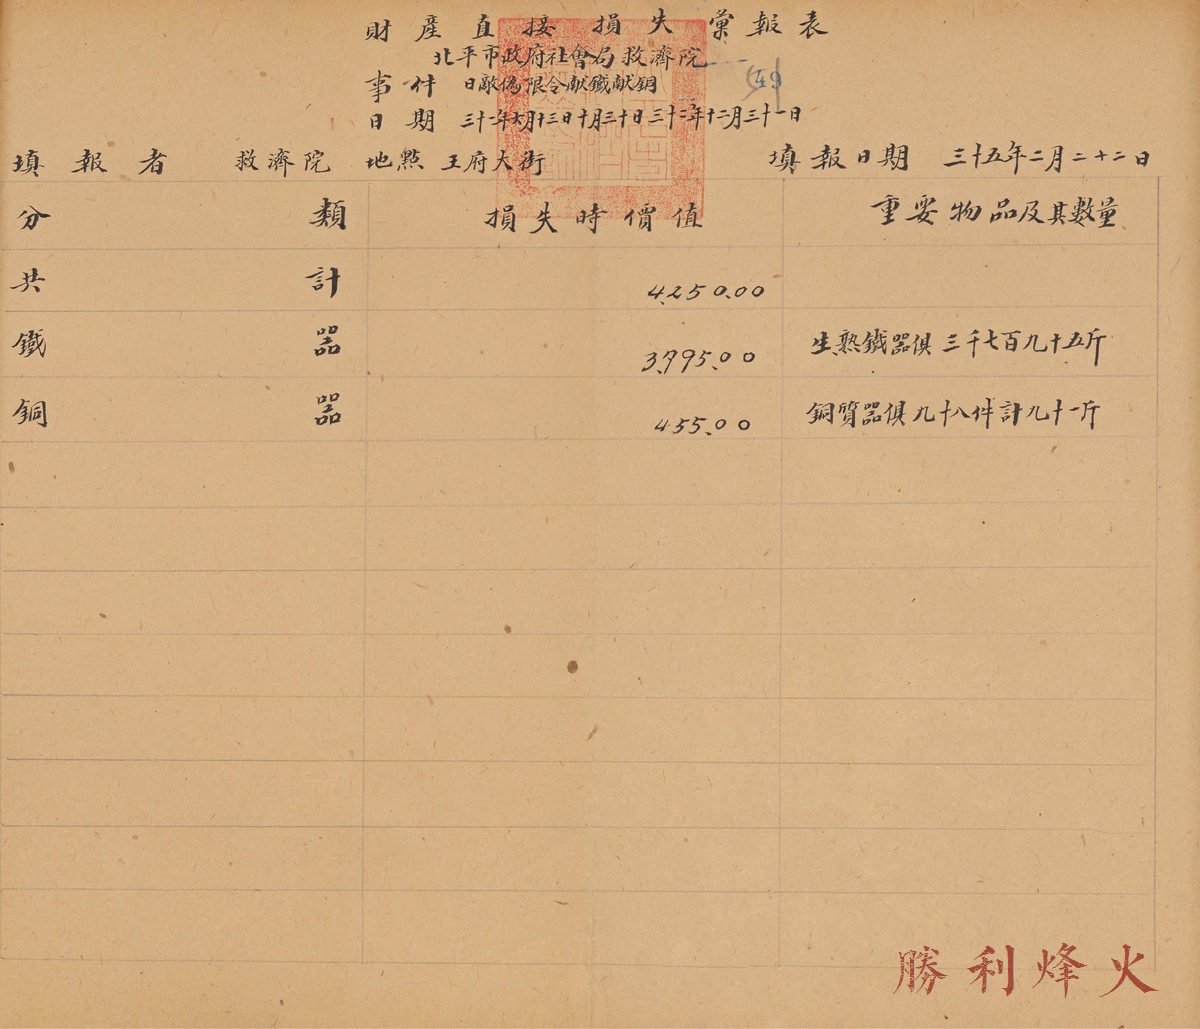 財產直接損失彙報表
北平市政府社會局救濟院
事件 日敵偽限令献鐵献銅
日期 三十一年六月十三日十月三十日三十二年十二月三十一日
填報者 救濟院 地點 王府大街 填報日期 三十五年二月二十二日
分類 損失時價值 重要物品及其數量
共計 4,250.00
鐵器 3,795.00 生熟鐵器俱三千七百九十五斤
銅器 455.00 銅質器俱九十八件計九十一斤
勝利烽火